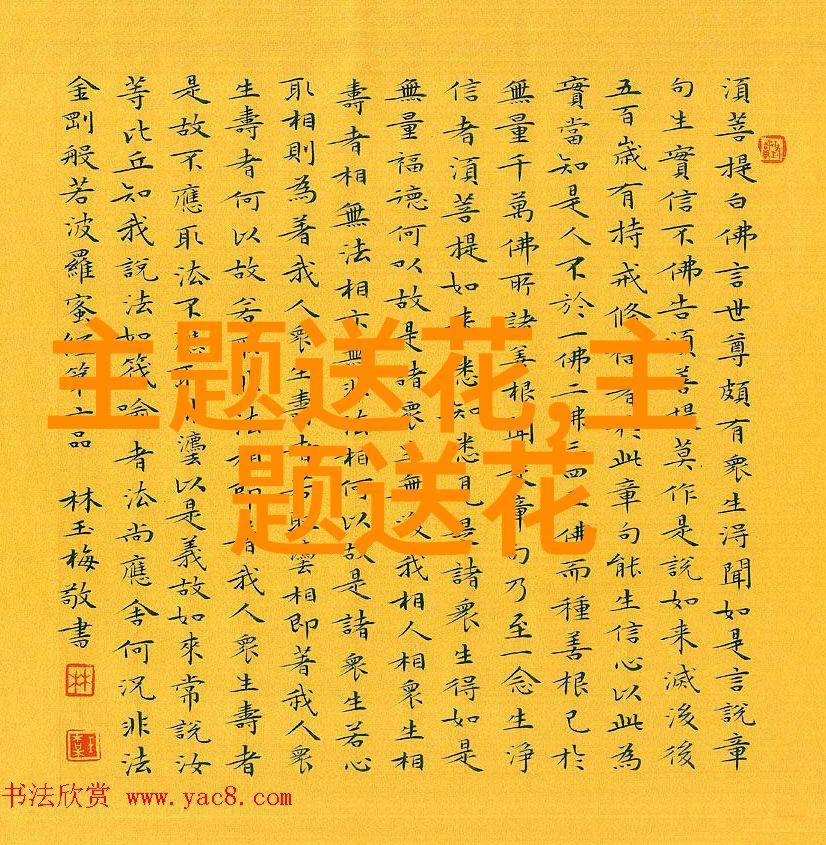 須菩提白佛言世尊頗有衆生得聞如是言說章
句生實信不佛告須菩提莫作是說如来滅後後
五百嵗有持戒修福者於此章句能生信心以此為
實當知是人不於一佛二佛三四五佛而種善根已於
無量千萬佛所諸善根聞是章句乃至一念生浄
信者須菩提如来悉知悉見是諸衆生得如是
無量福德何以故是諸衆生無復我相人相衆生相
壽者相無法相亦無非法相何以故是諸衆生若心
取相則為著我人衆生壽者若取灋相即著我人衆
生壽者何以故若取非法相即著我人衆生壽者
是故不應取法不應取非灋以是義故如來常說汝
等比丘知我說法如筏喻者法尚應舍何況非法
金剛般若波羅蜜經第六品 林玉梅敬書
林
主题送花,主
题送花
书法欣赏 www.yac8.com